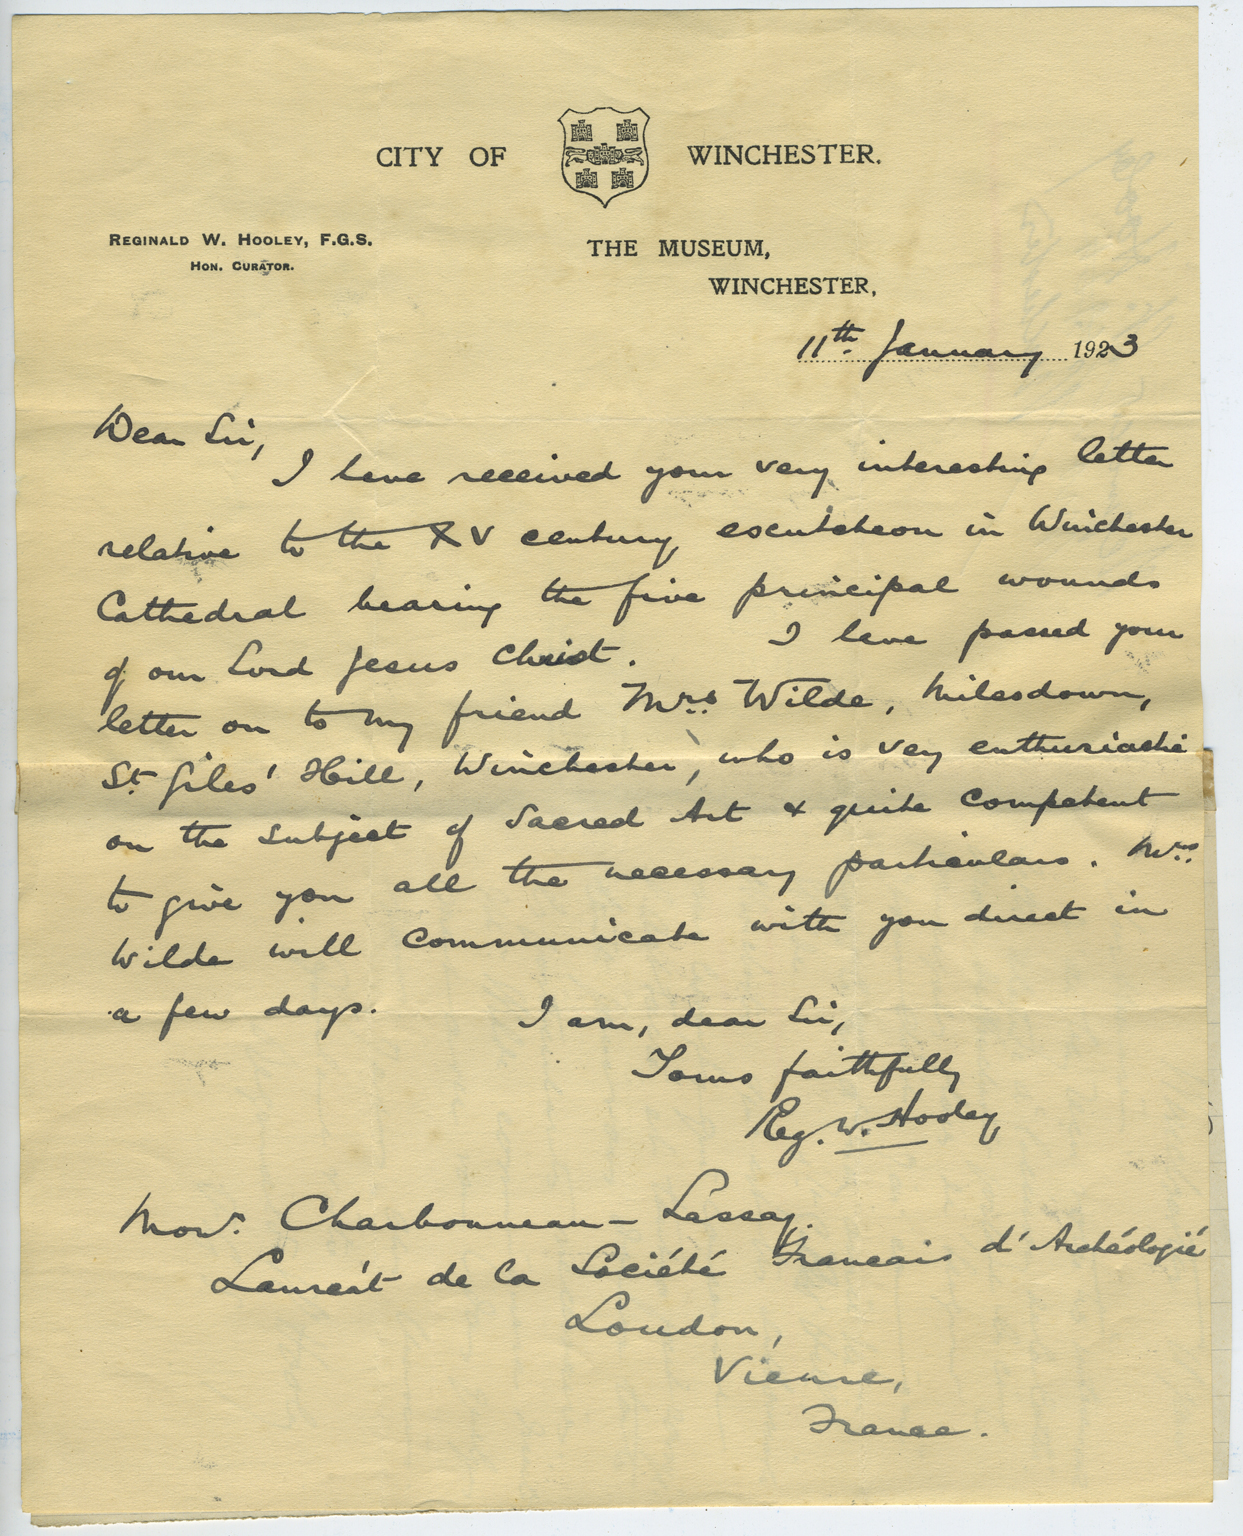 CITY OF WINCHESTER.
REGINALD W. HOOLEY, F.G.S.
HON. CURATOR.
THE MUSEUM,
WINCHESTER,
11th January 1923
Dear Sir,
I have received your very interesting letter
relative to the XV century escutcheon in Winchester
Cathedral bearing the five principal wounds
of our Lord Jesus Christ. I have passed your
letter on to my friend Mrs. Wilde, Milesdown,
St. Giles' Hill, Winchester, who is very enthusiastic
on the subject of Sacred Art & quite competent
to give you all the necessary particulars. Mrs.
Wilde will communicate with you direct in
a few days.
I am, dear Sir,
Yours faithfully
Reg. W. Hooley
Monr. Charbonneau-Lassay.
Lauréat de la Société Francais d'Archéologié
Loudon,
Vienne,
France.